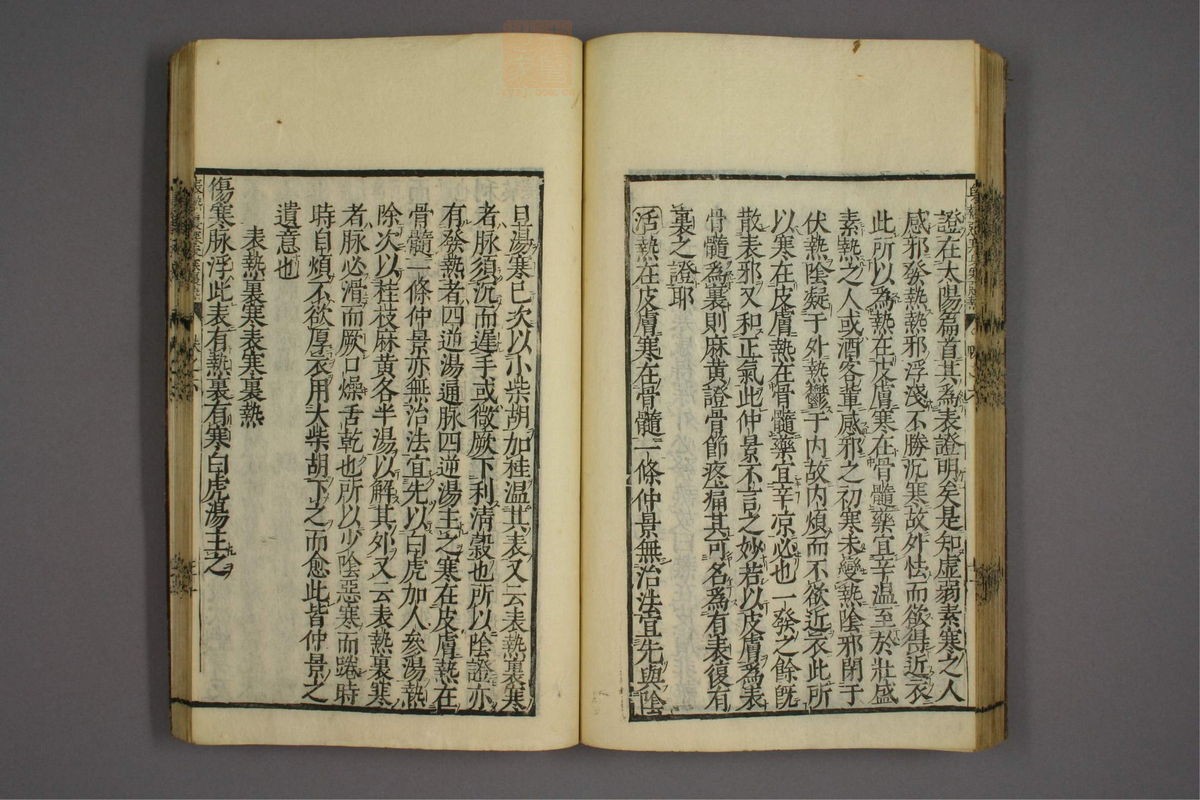 證在太陽篇首其為表證明矣是知虛弱素寒之人
感邪發熱熱邪浮淺不勝沉寒故外怯而欲得近衣
此所以為熱在皮膚寒在骨髓藥宜辛溫至於壯盛
素熱之人或酒客輩感邪之初寒未變熱陰邪閉于
伏熱陰凝于外熱鬱于内故内煩而不欲近衣此所
以寒在皮膚熱在骨髓藥宜辛凉必也一發之餘旣
散表邪又和正氣此仲景不言之妙若以皮膚為表
骨髓為裏則麻黃證骨節疼痛其可名為有表復有
裏之證耶
活熱在皮膚寒在骨髓一條仲景無治法宜先與陰
旦湯寒已次以小柴胡加桂溫其表又云表熱裏寒
者脉須沉而遲手或微厥下利清穀也所以陰證亦
有發熱者四逆湯通脉四逆湯主之寒在皮膚熱在
骨髓一條仲景亦無治法宜先以白虎加人參湯熱
除次以桂枝麻黃各半湯以解其外又云表熱裏寒
者脉必滑而厥口燥舌乾也所以少陰惡寒而踡時
時自煩不欲厚衣用大柴胡下之而愈此皆仲景之
遺意也
表熱裏寒表寒裏熱
傷寒脉浮此表有熱裏有寒白虎湯主之